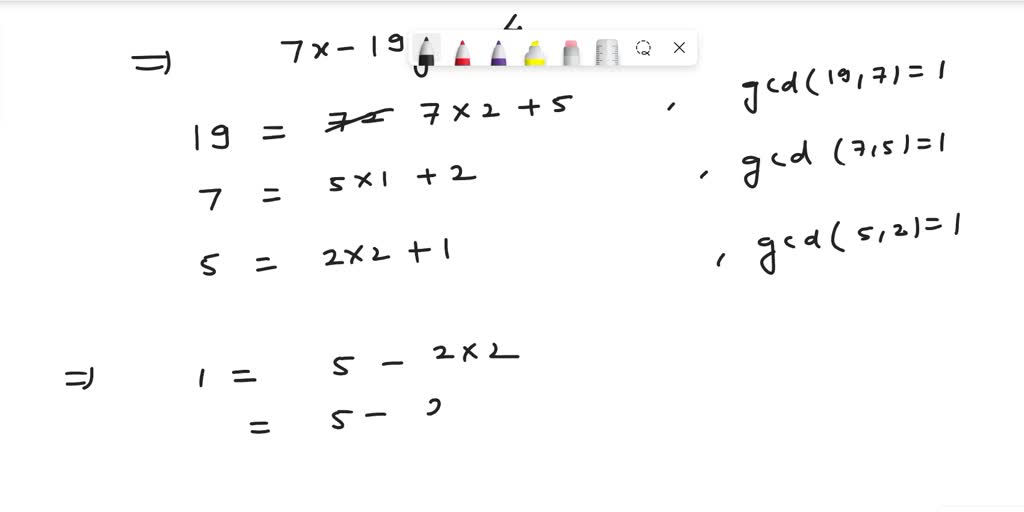 ⇒ 7x - 19y
19 = 7 × 2 + 5 , gcd(19,7)=1
7 = 5×1 + 2 , gcd (7,5)=1
5 = 2×2 + 1 , gcd(5,2)=1
⇒ 1 = 5 - 2×2
= 5 -